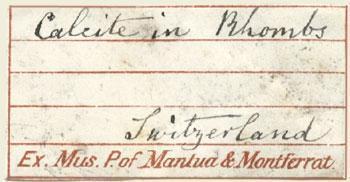 Calcite in Rhombs
Switzerland
Ex. Mus. P. of Mantua & Montferrat.